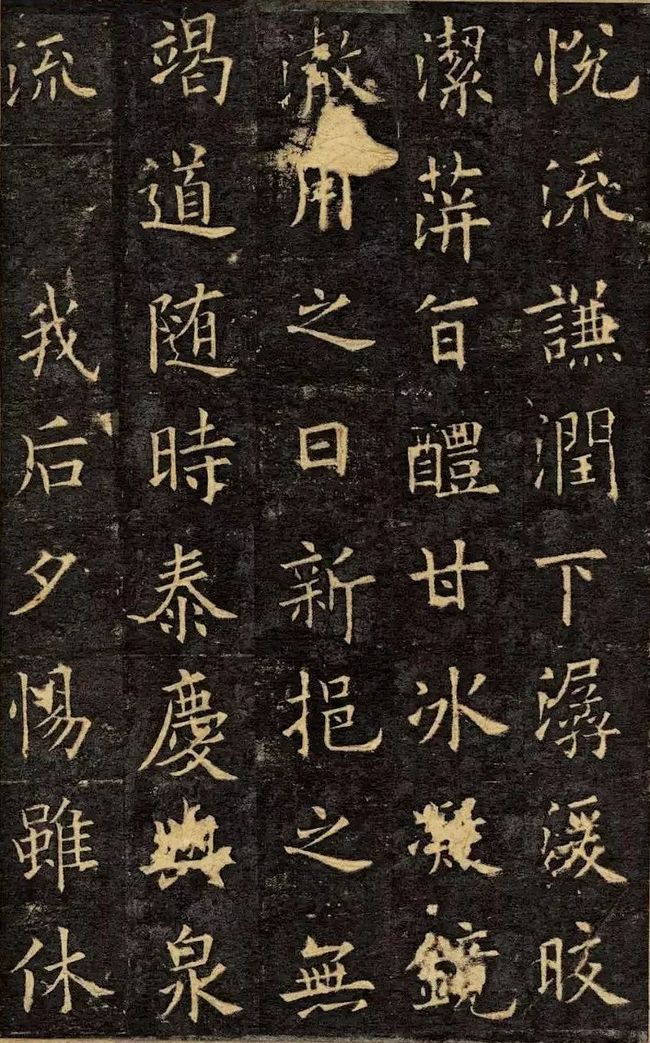 悅流謙潤下潺湲晈
潔蓱旨醴甘冰凝鏡
澈用之日新挹之無
竭道随時泰慶與泉
流 我后夕惕雖休